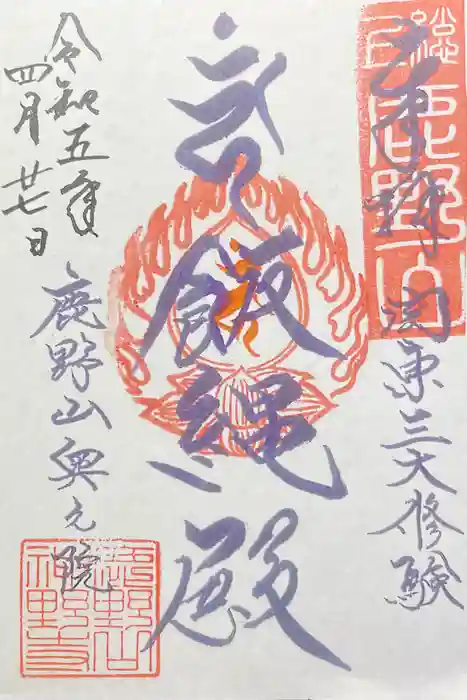 奉拝
鹿野山
関東三大修験
飯縄殿
鹿野山奥之院
令和五年
四月廿七日
鹿野山
神野寺